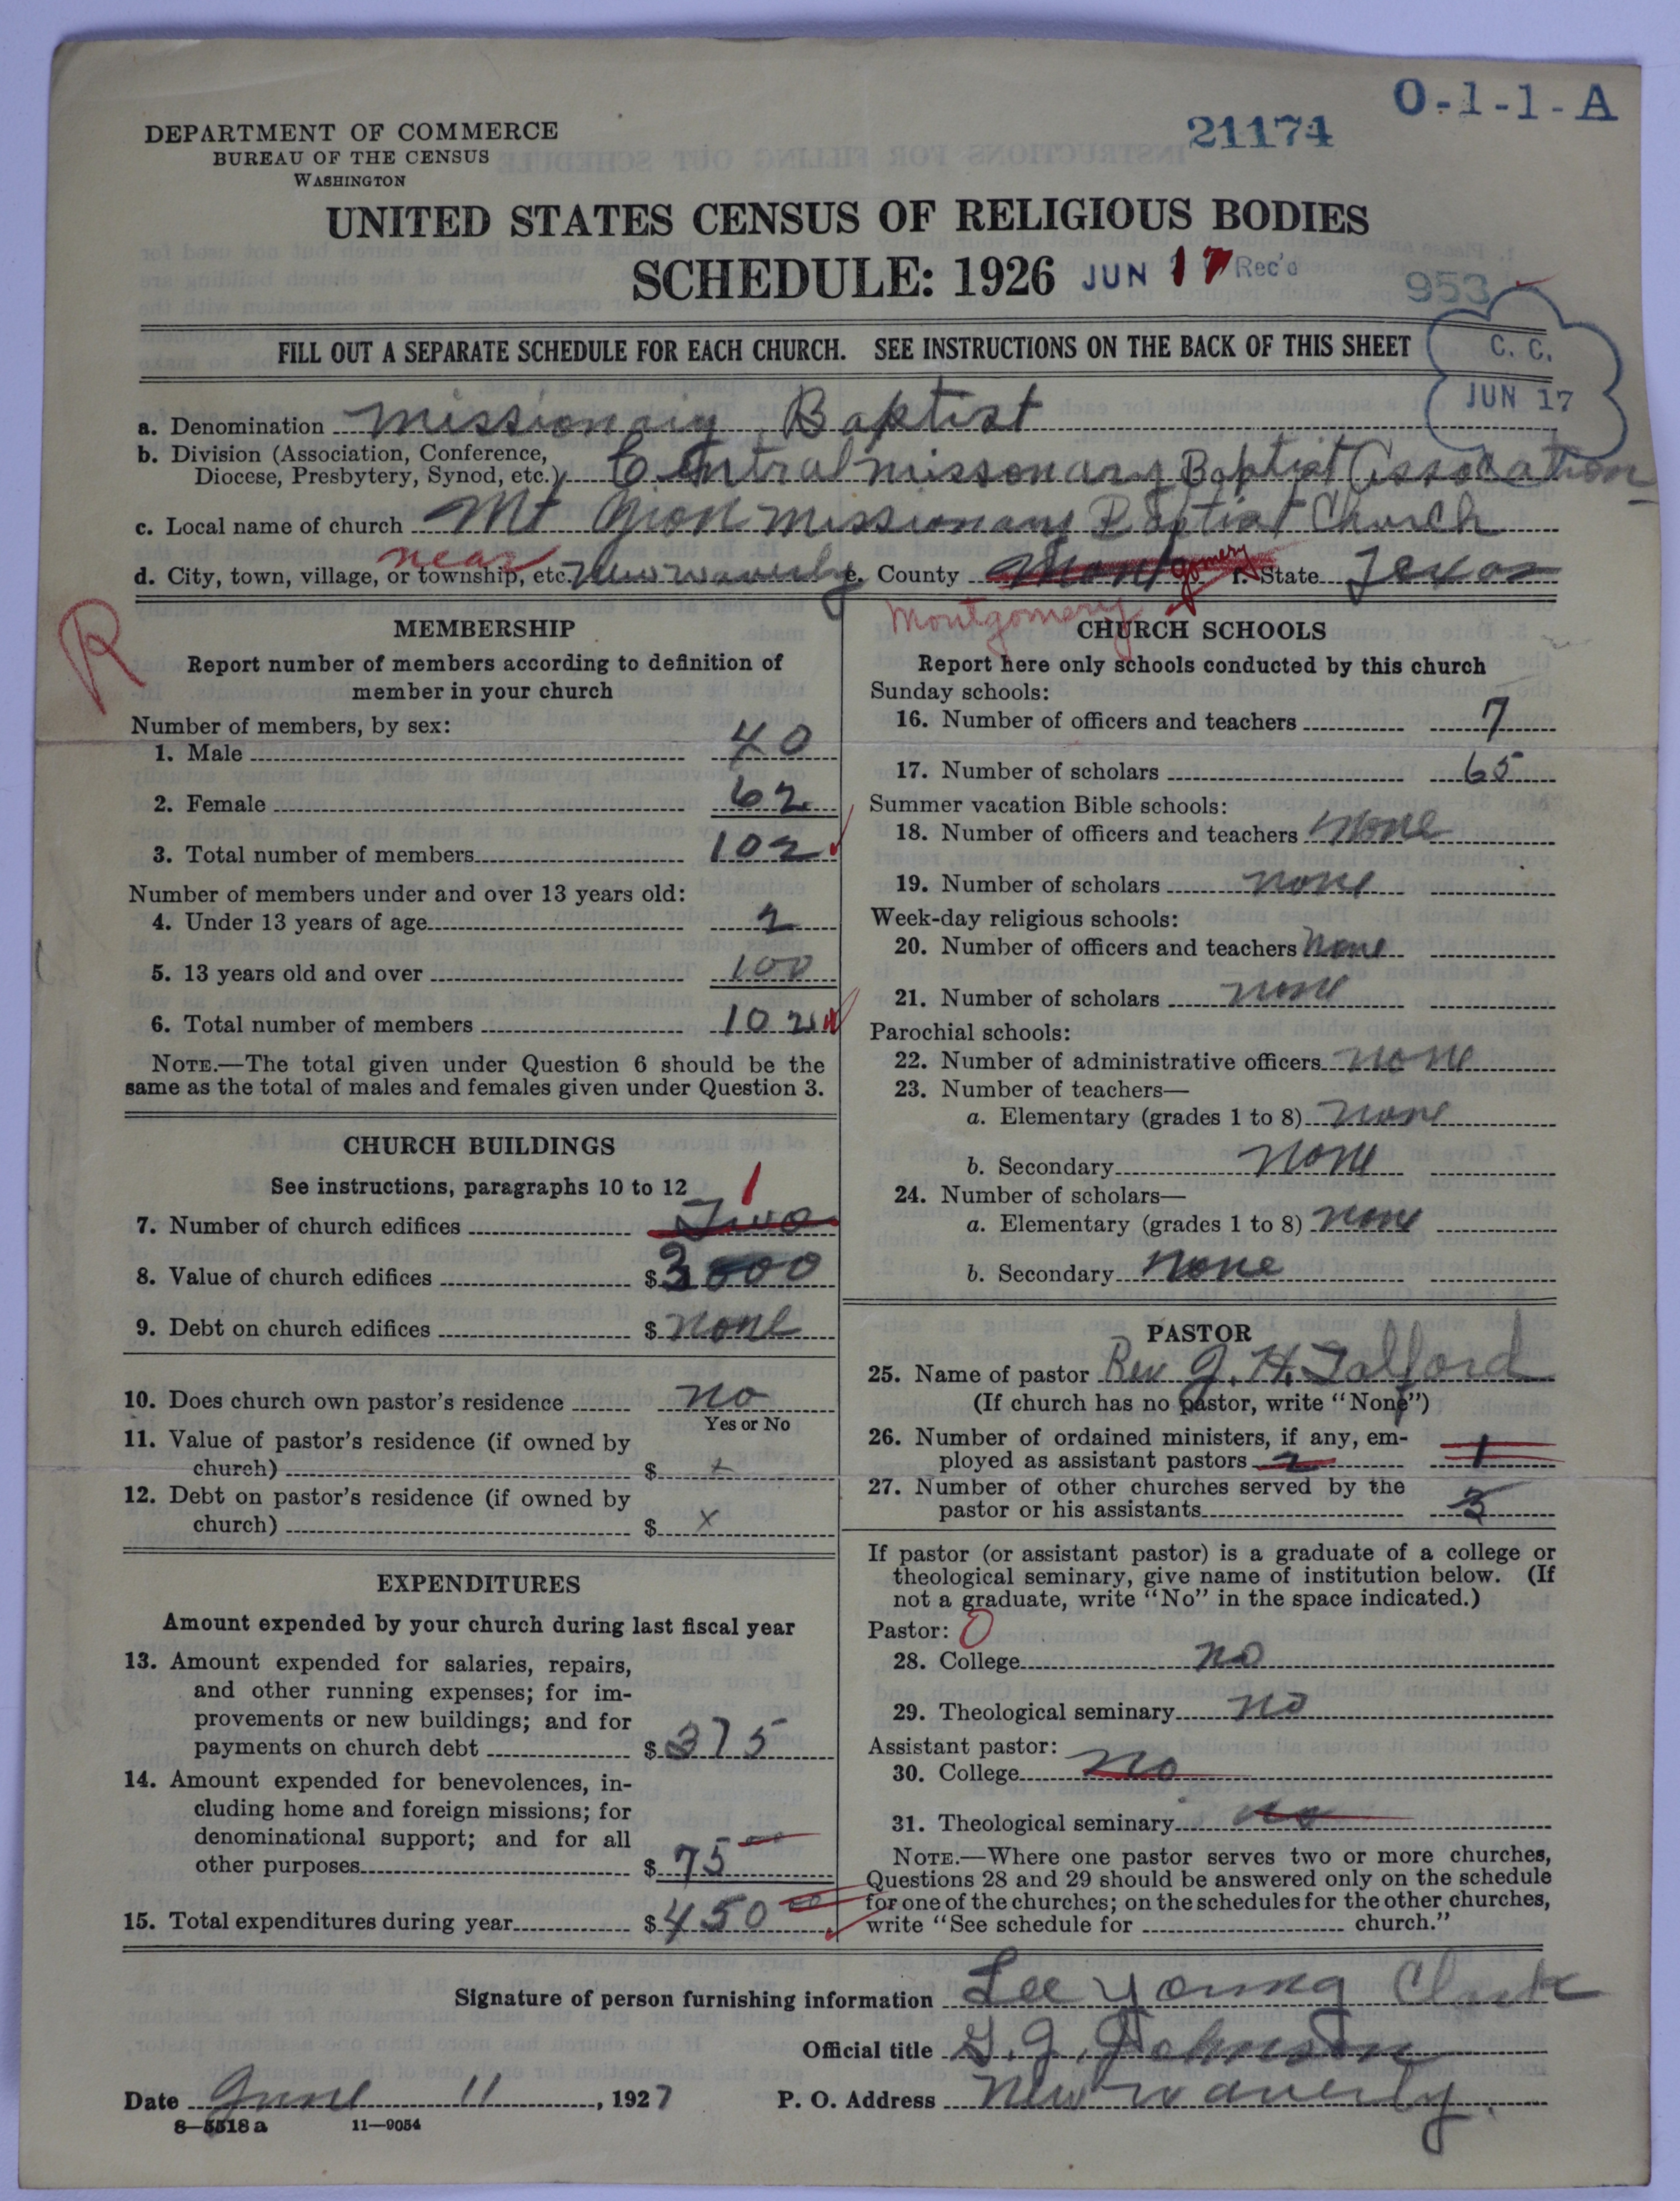 O-1-1-A
21174
DEPARTMENT OF COMMERCE
BUREAU OF THE CENSUS
WASHINGTON
UNITED STATES CENSUS OF RELIGIOUS BODIES
SCHEDULE: 1926 JUN 17 Rec'd
953
FILL OUT A SEPARATE SCHEDULE FOR EACH CHURCH. SEE INSTRUCTIONS ON THE BACK OF THIS SHEET
C. C.
JUN 17
a. Denomination Missionary Baptist
b. Division (Association, Conference,
Diocese, Presbytery, Synod, etc.) Central missonary Baptist Assocation
c. Local name of church Mt Zion Missionary Baptist Church
near
d. City, town, village, or township, etc. New waverly e. County Montgomery f. State Texas
Montgomery
R
MEMBERSHIP
Report number of members according to definition of
member in your church
Number of members, by sex:
1. Male 40
2. Female 62
3. Total number of members 102
Number of members under and over 13 years old:
4. Under 13 years of age 2
5. 13 years old and over 100
6. Total number of members 102
NOTE.—The total given under Question 6 should be the
same as the total of males and females given under Question 3.
CHURCH BUILDINGS
See instructions, paragraphs 10 to 12
1
7. Number of church edifices Two
8. Value of church edifices $3000
9. Debt on church edifices $none
10. Does church own pastor's residence no
Yes or No
11. Value of pastor's residence (if owned by
church) $ x
12. Debt on pastor's residence (if owned by
church) $ x
EXPENDITURES
Amount expended by your church during last fiscal year
13. Amount expended for salaries, repairs,
and other running expenses; for im-
provements or new buildings; and for
payments on church debt $375
14. Amount expended for benevolences, in-
cluding home and foreign missions; for
denominational support; and for all
other purposes $75 00
15. Total expenditures during year $450 00
CHURCH SCHOOLS
Report here only schools conducted by this church
Sunday schools:
16. Number of officers and teachers 7
17. Number of scholars 65
Summer vacation Bible schools:
18. Number of officers and teachers none
19. Number of scholars none
Week-day religious schools:
20. Number of officers and teachers none
21. Number of scholars none
Parochial schools:
22. Number of administrative officers none
23. Number of teachers—
a. Elementary (grades 1 to 8) none
b. Secondary none
24. Number of scholars—
a. Elementary (grades 1 to 8) none
b. Secondary none
PASTOR
25. Name of pastor Rev J. H. Talford
(If church has no pastor, write "None")
26. Number of ordained ministers, if any, em-
ployed as assistant pastors 2 1
27. Number of other churches served by the
pastor or his assistants 3
If pastor (or assistant pastor) is a graduate of a college or
theological seminary, give name of institution below. (If
not a graduate, write "No" in the space indicated.)
Pastor: 0
28. College no
29. Theological seminary no
Assistant pastor:
30. College no
31. Theological seminary no
NOTE.—Where one pastor serves two or more churches,
Questions 28 and 29 should be answered only on the schedule
for one of the churches; on the schedules for the other churches,
write "See schedule for church."
Signature of person furnishing information Lee Young Clark
Official title G. J. Johnson
Date June 11, 1927 P. O. Address New waverly.
8—5518 a 11—9054